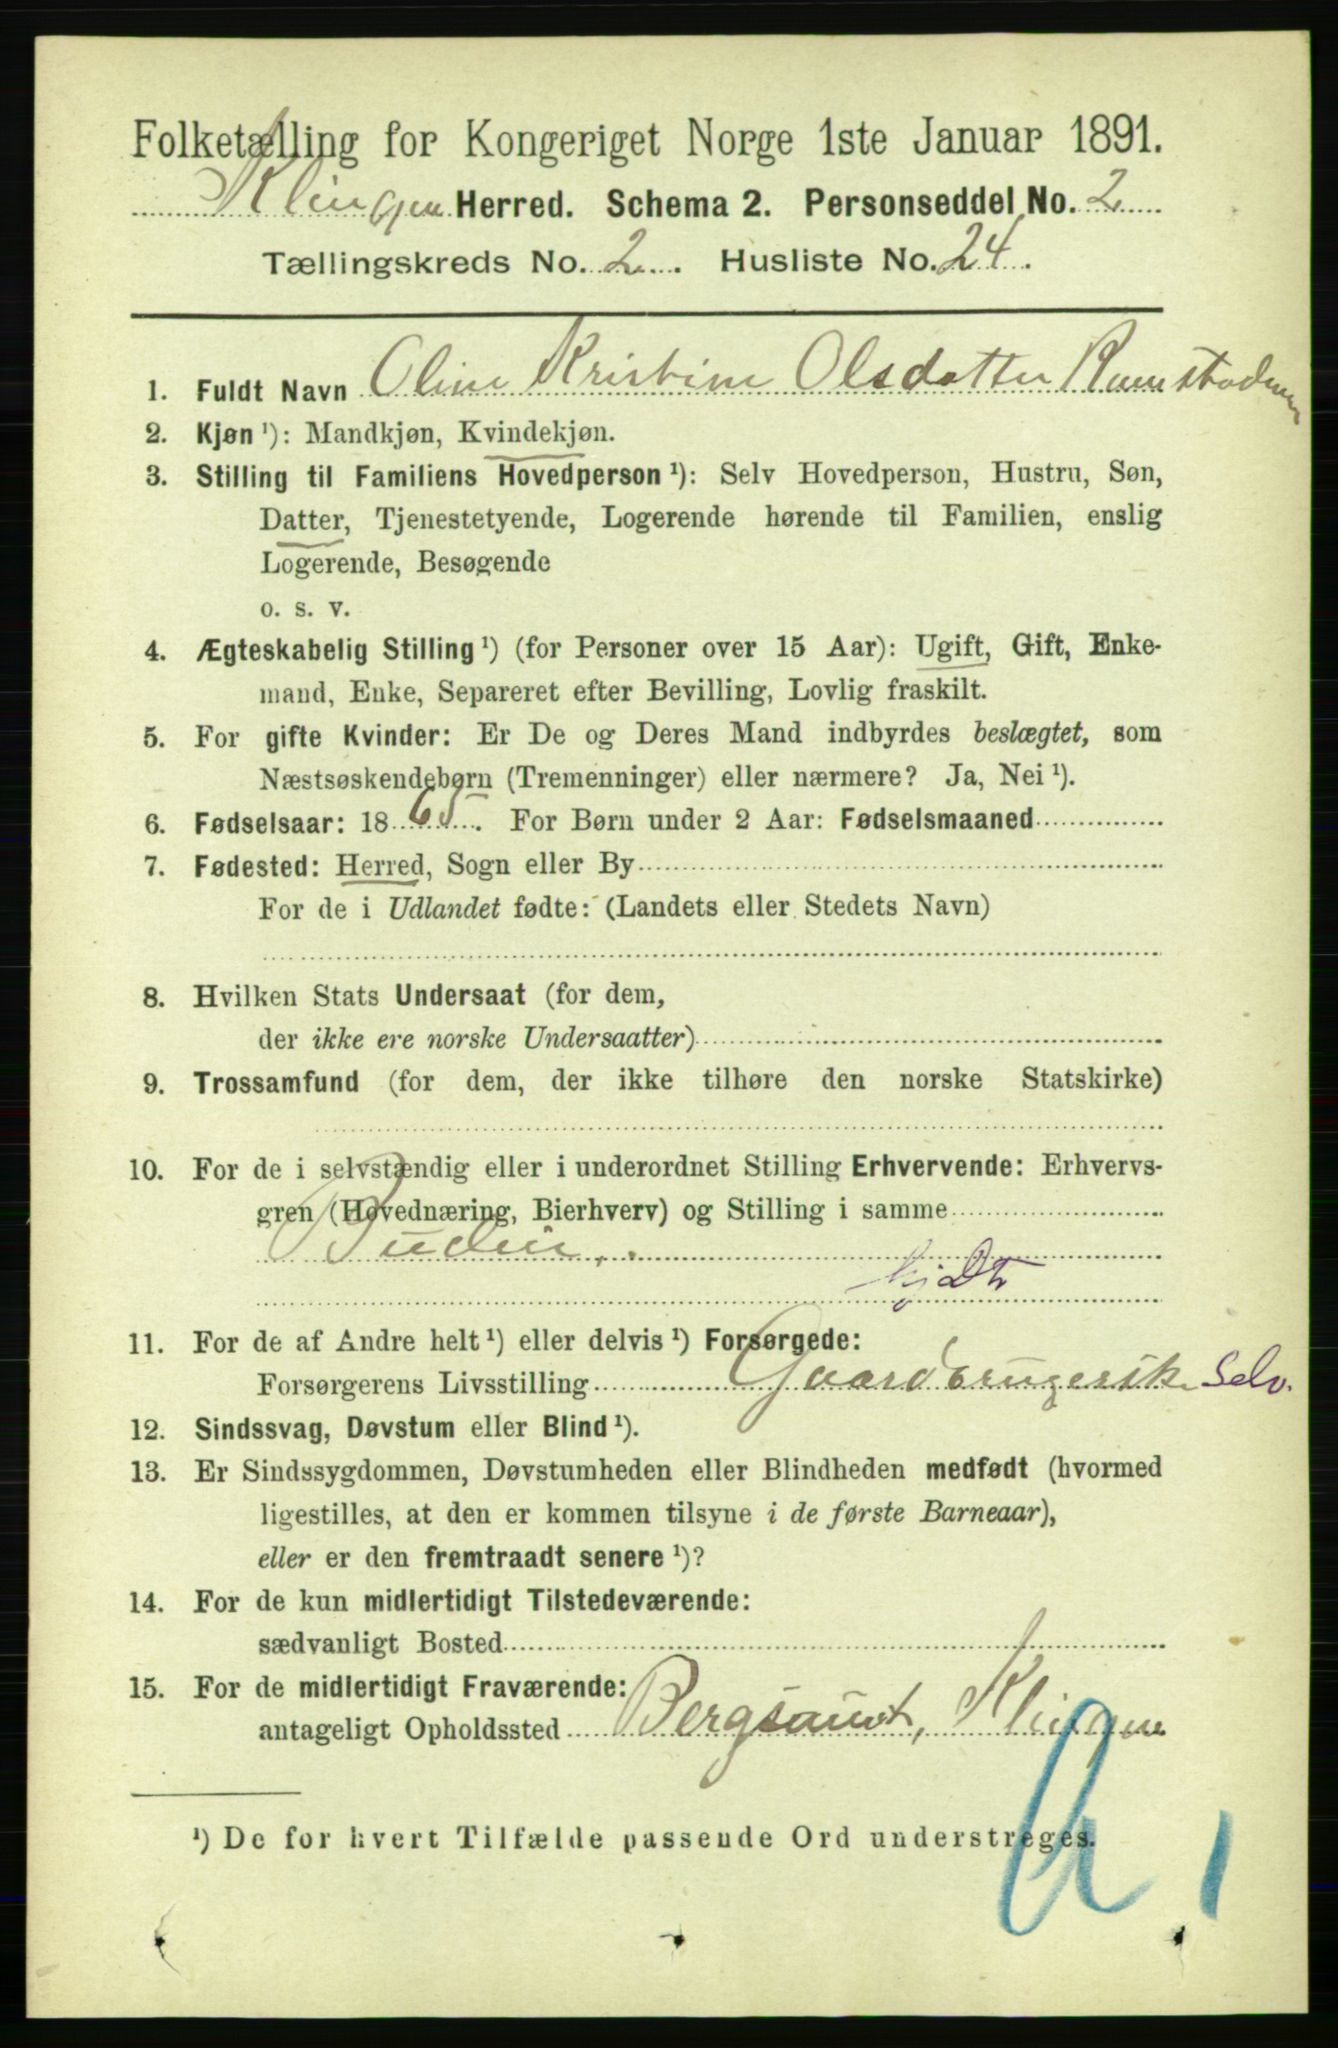 Folketælling for Kongeriget Norge 1ste Januar 1891.
Klingen Herred. Schema 2. Personseddel No. 2
Tællingskreds No. 2. Husliste No. 24.
1. Fuldt Navn Oline Kristine Olsdatter
2. Kjøn ¹): Mandkjøn, Kvindekjøn.
3. Stilling til Familiens Hovedperson ¹): Selv Hovedperson, Hustru, Søn,
Datter, Tjenestetyende, Logerende hørende til Familien, enslig
Logerende, Besøgende
o. s. v.
4. Ægteskabelig Stilling ¹) (for Personer over 15 Aar): Ugift, Gift, Enke-
mand, Enke, Separeret efter Bevilling, Lovlig fraskilt.
5. For gifte Kvinder: Er De og Deres Mand indbyrdes beslægtet, som
Næstsøskendebørn (Tremenninger) eller nærmere? Ja, Nei ¹).
6. Fødselsaar: 1865. For Børn under 2 Aar: Fødselsmaaned
7. Fødested: Herred, Sogn eller By
For de i Udlandet fødte: (Landets eller Stedets Navn)
8. Hvilken Stats Undersaat (for dem,
der ikke ere norske Undersaatter)
9. Trossamfund (for dem, der ikke tilhøre den norske Statskirke)
10. For de i selvstændig eller i underordnet Stilling Erhvervende: Erhvervs-
gren (Hovednæring, Bierhverv) og Stilling i samme
Budeie.
hjDtr
11. For de af Andre helt ¹) eller delvis ¹) Forsørgede:
Forsørgerens Livsstilling Gaardbrugerske Selv.
12. Sindssvag, Døvstum eller Blind ¹).
13. Er Sindssygdommen, Døvstumheden eller Blindheden medfødt (hvormed
ligestilles, at den er kommen tilsyne i de første Barneaar),
eller er den fremtraadt senere ¹)?
14. For de kun midlertidigt Tilstedeværende:
sædvanligt Bosted
15. For de midlertidigt Fraværende:
antageligt Opholdssted Bergsaunet, Klingen
¹) De for hvert Tilfælde passende Ord understreges.